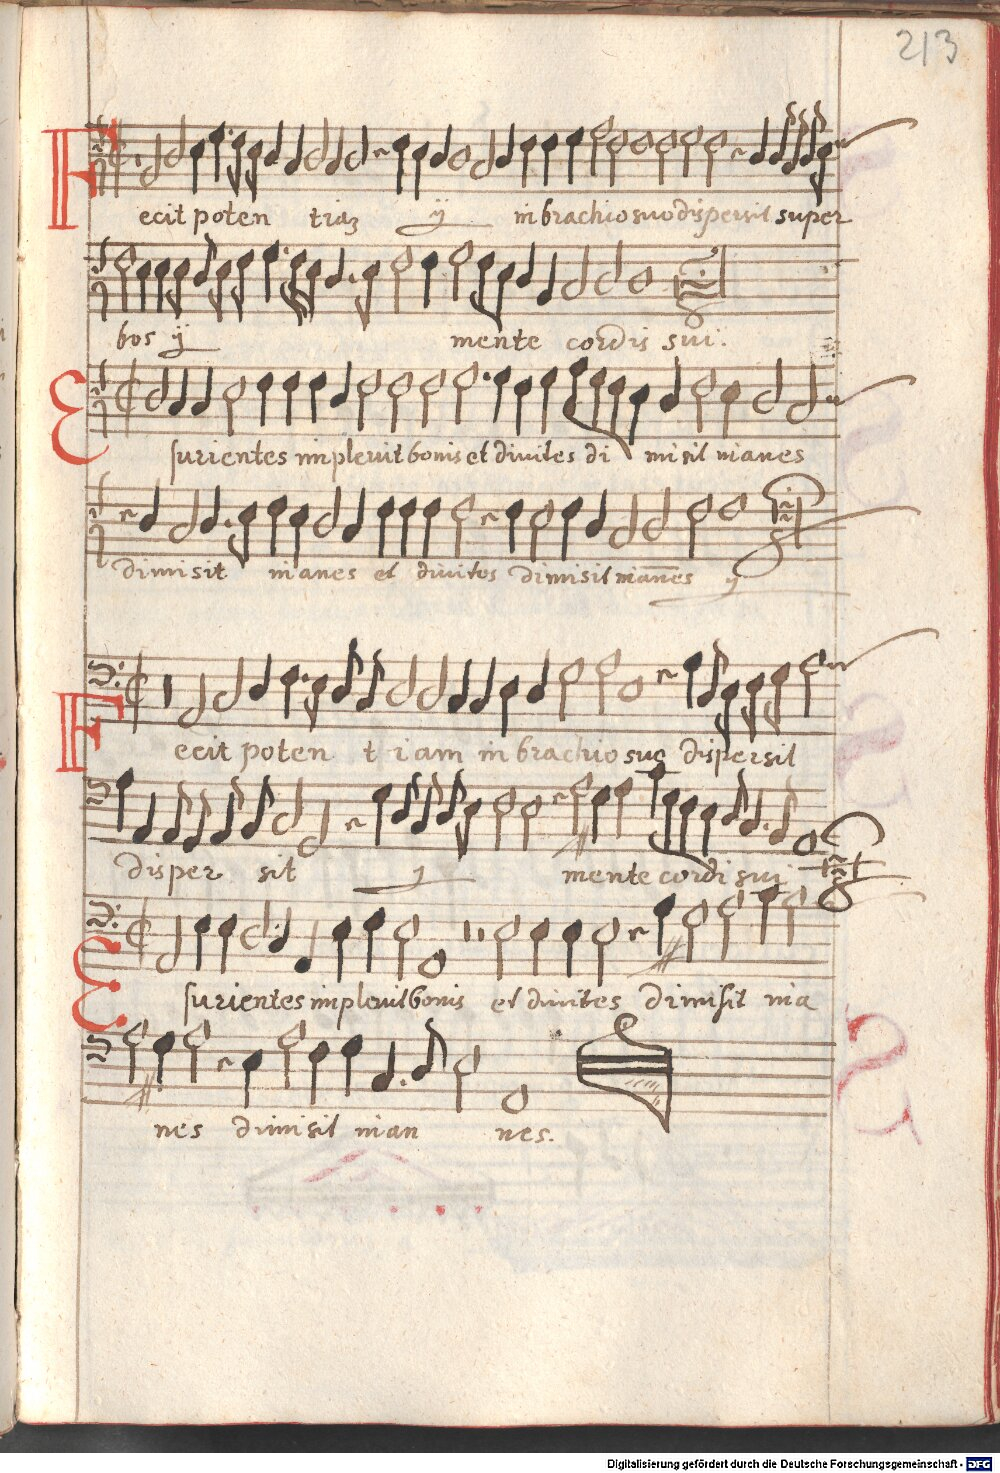 213
Fecit poten tiaʒ ÿ in brachio suo dispersit super
bos ÿ mente cordis sui.
Esurientes implevit bonis et divites di misit inanes
dimisit inanes et divites dimisit inanes ÿ
Fecit poten t i am in brachio suo dispersit
disper sit ÿ mente cordi sui
Esurientes implevit bonis et divites dimisit ina
nes dimisit inan nes.
Digitalisierung gefördert durch die Deutsche Forschungsgemeinschaft - DFG